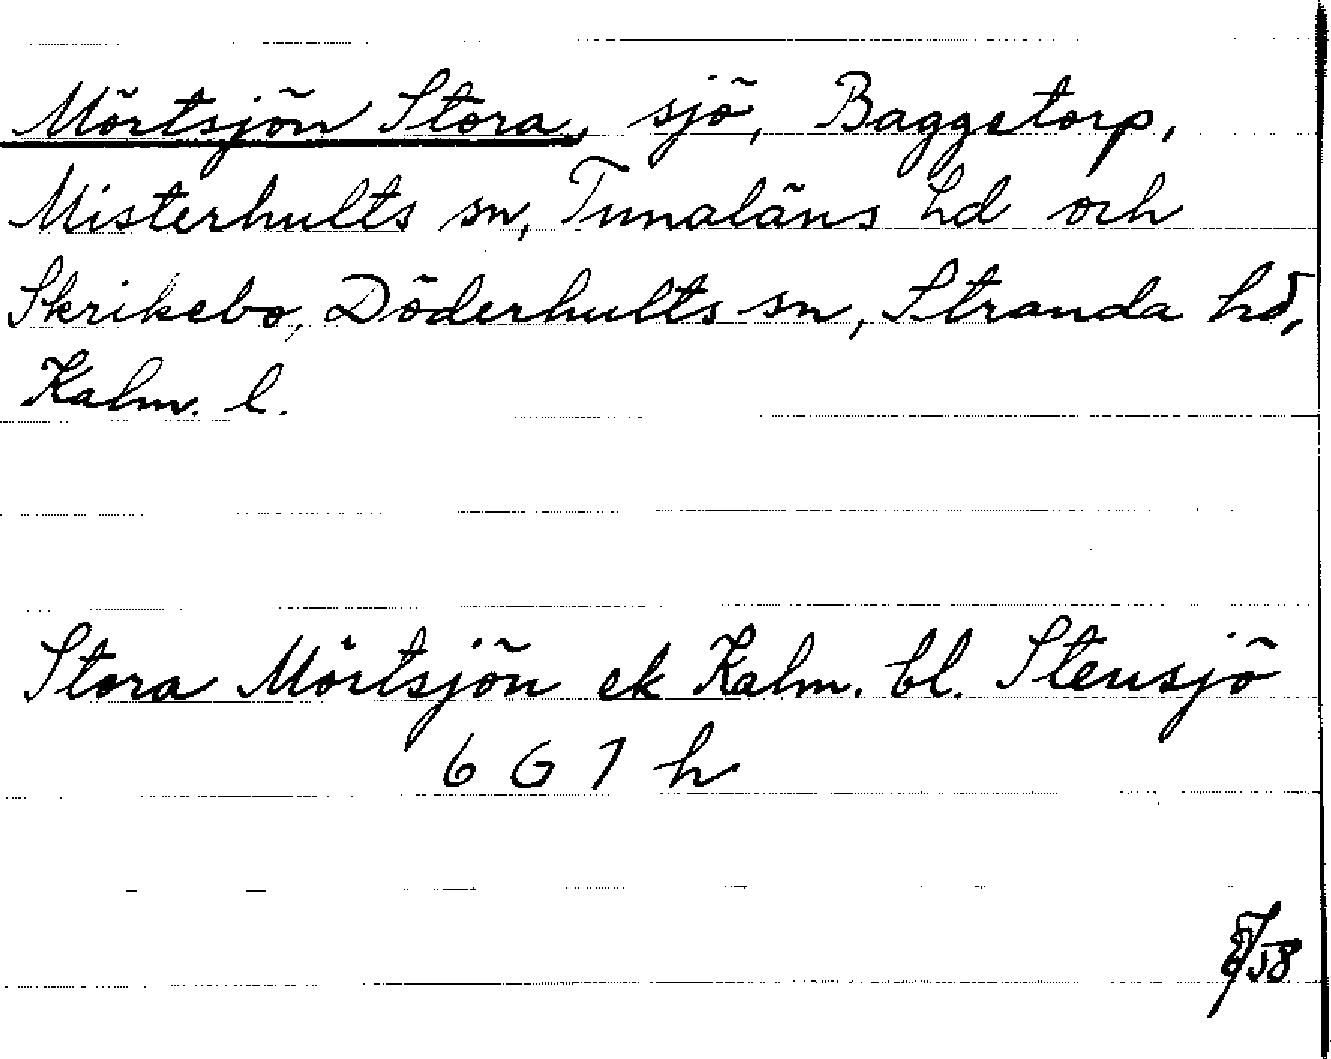 Mörtsjön Stora, sjö, Baggetorp,
Misterhults sn, Tunaläns hd och
Skrikebo, Döderhults sn, Stranda hd,
Kalm. l.
Stora Mörtsjön ek Kalm. bl. Stensjö
6 G 7 h